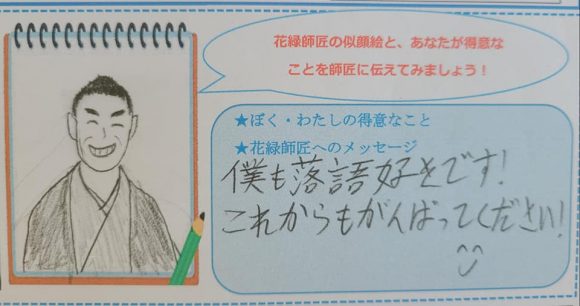 花緑師匠の似顔絵と、あなたが得意な
ことを師匠に伝えてみましょう！
★ぼく・わたしの得意なこと
★花緑師匠へのメッセージ
僕も落語好きです!
これからもがんばってください!